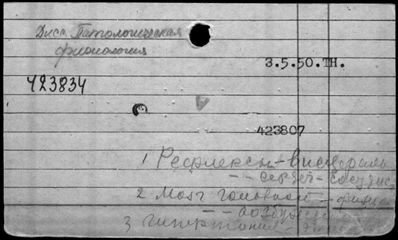 Дисс. Патологическая
физиология
3.5.50.ТН.
423834
423807
1 Рефлексы - висцераль
-- сердеч - сосудис
2 Мозг головной - физиол
-- возбужд
3 Гипертония -